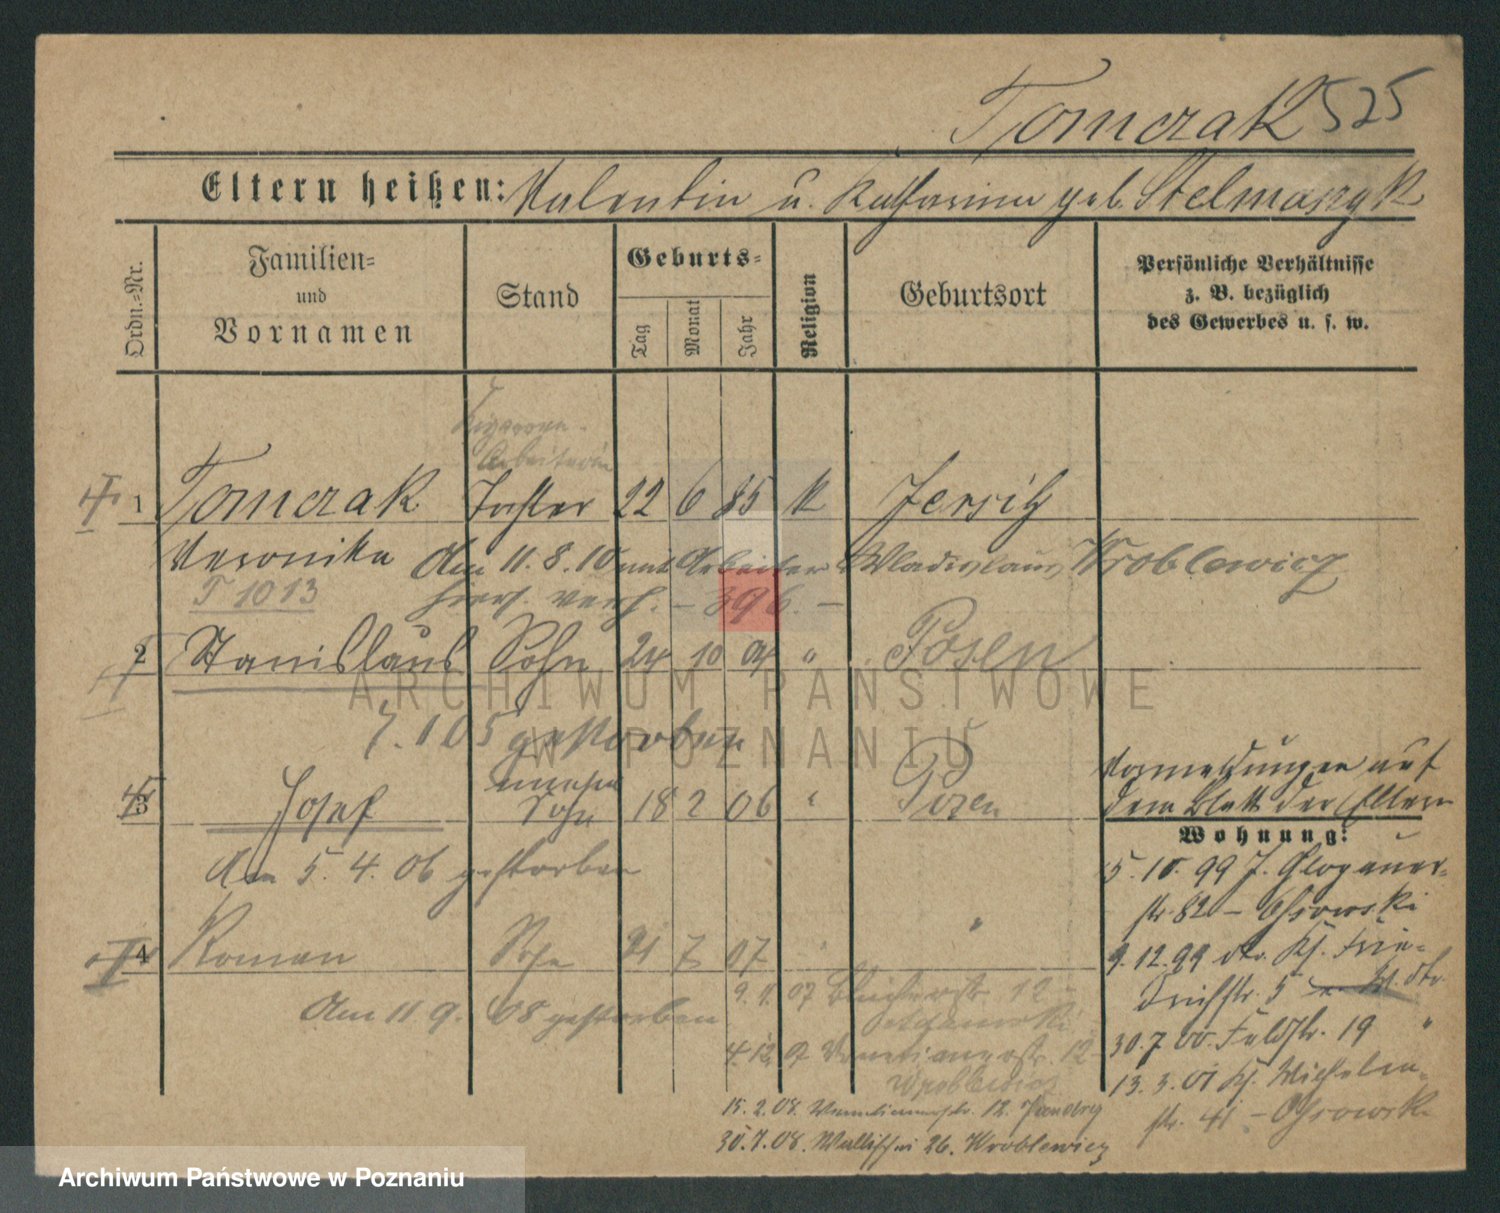 Tomczak 525
Eltern heißen: Valentin u. Katharina geb. Stelmaszyk
Ordn.=Nr.
Familien=
und
Vornamen
Stand
Geburts=
Tag
Monat
Jahr
Religion
Geburtsort
Persönliche Verhältnisse
z. B. bezüglich
des Gewerbes u. s. w.
Zigarren-
Arbeiterin
1 Tomczak Tochter 22 6 85 k Jersitz
Veronika Am 11.8.10 mit Arbeiter Wladislaus Wroblewicz
T 1013 hiers. verh. – 396. –
2 Stanislaus Sohn 24 10 04 " Posen
7.1 05 gestorben
unehel
3 Josef Sohn 18 2 06 " Posen
Am 5. 4. 06 gestorben
4 Roman Sohn 21 7 07 "
Am 11 9. 08 gestorben
Vormerkungen auf
dem Blatt der Eltern
Wohnung:
5.10.99 J. Glogauer-
str. 82 –
9.12.99 Frie-
drichstr. 5
30.7.00. Feldstr. 19 "
13.3.01 Wilhelm-
str. 41 –
9. 11. 07 12 –
4.12. 07 Venetianerstr. 12 –
Wroblewicz
15.2.08. Venetianerstr. 12.
30.7.08. Wallischei 26. Wroblewicz
ARCHIWUM PAŃSTWOWE
W POZNANIU
Archiwum Państwowe w Poznaniu